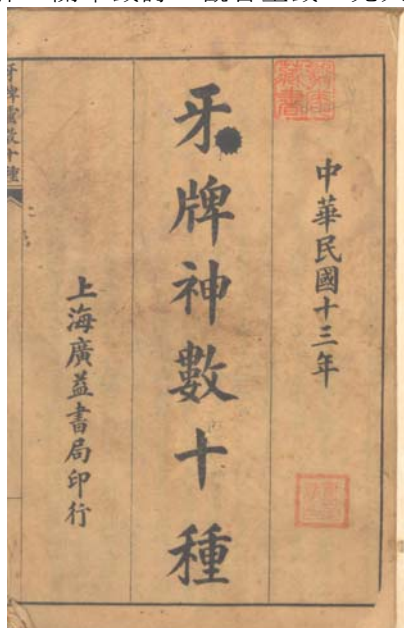 中華民國十三年
牙牌神數十種
上海廣益書局印行
牙牌靈數十種